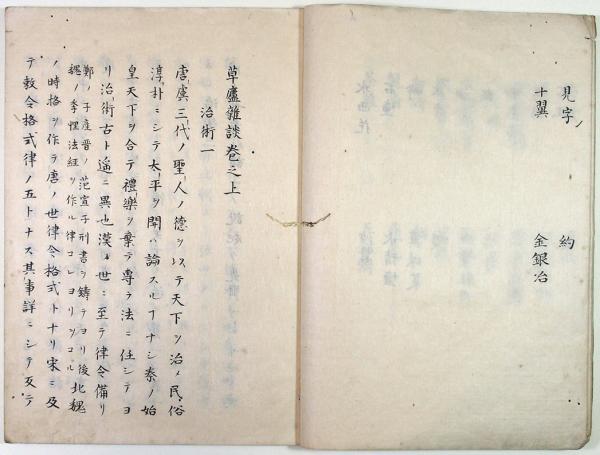 見字　約
十翼　金銀冶
草廬雑談巻之上
治術一
唐虞三代ノ聖人ノ德ヲ以テ天下ヲ治メ民俗
淳朴ニシテ太平ヲ開ハ論スルヿナシ秦ノ始
皇天下ヲ合テ禮樂ヲ棄テ専ラ法ニ任シテヨ
リ治術古ト遙ニ異也漢ノ世ニ至テ律令備リ
鄭ノ子産晋ノ范宣子刑書ヲ鋳テヨリ後北魏
魏ノ李悝法経ヲ作ル律コレヨリヲコル
ノ時格ヲ作ラ唐ノ世律令格式トナリ宋ニ及
テ敕令格式律ノ五トナス其事詳ニシテ反テ